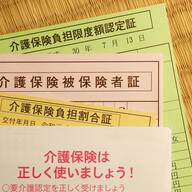 介護保険負担限度額認定証
30年7月13日
介護保険被保険者証
介護保険負担割合証
交付年月日
介護保険は
正しく使いましょう！
○要介護認定を正しく受けましょう